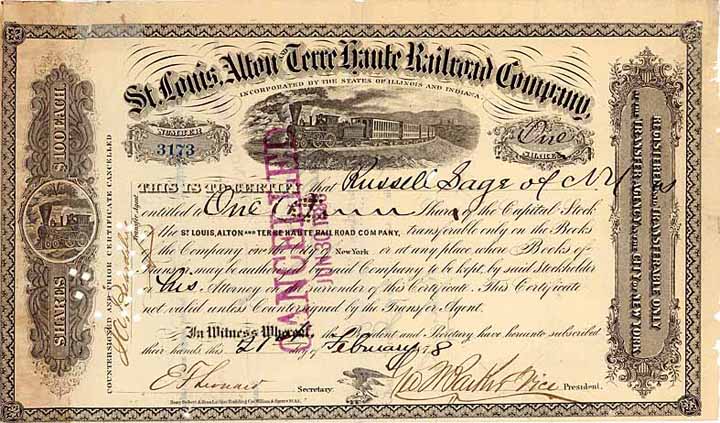 St. Louis, Alton and Terre Haute Railroad Company
INCORPORATED BY THE STATES OF ILLINOIS AND INDIANA.
NUMBER
3173
One
SHARES
THIS IS TO CERTIFY that Russell Sage of N Y is
entitled to One Share of the Capital Stock
of the ST. LOUIS, ALTON AND TERRE HAUTE RAILROAD COMPANY, transferable only on the Books
of the Company in the City of New York or at any place where Books of
Transfer may be authorized by said Company to be kept, by said Stockholder
or his Attorney on the surrender of this Certificate. This Certificate
not valid unless Countersigned by the Transfer Agent.
In Witness Whereof, the President and Secretary have hereunto subscribed
their hands this 21 of February
Secretary. Vice President.
CANCELLED
SHARES $100 EACH
COUNTERSIGNED AND PRIOR CERTIFICATE CANCELLED
Transfer Agent
REGISTERED AND TRANSFERABLE ONLY
AT THE TRANSFER AGENCY IN THE CITY OF NEW YORK